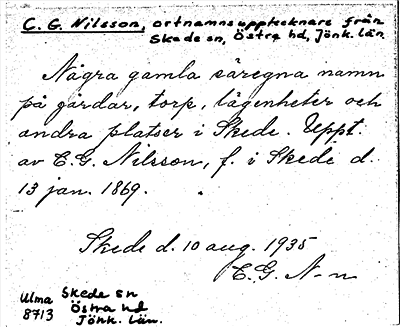 C. G. Nilsson, ortnamnsupptecknare från
Skede sn, Östra hd, Jönk. län.
Några gamla säregna namn
på gårdar, torp, lägenheter och
andra platser i Skede. Uppt.
av C. G. Nilsson, f. i Skede d.
13 jan. 1869.
Skede d. 10 aug. 1935
C. G. N-n
Ulma
8713
Skede sn
Östra hd
Jönk. län.